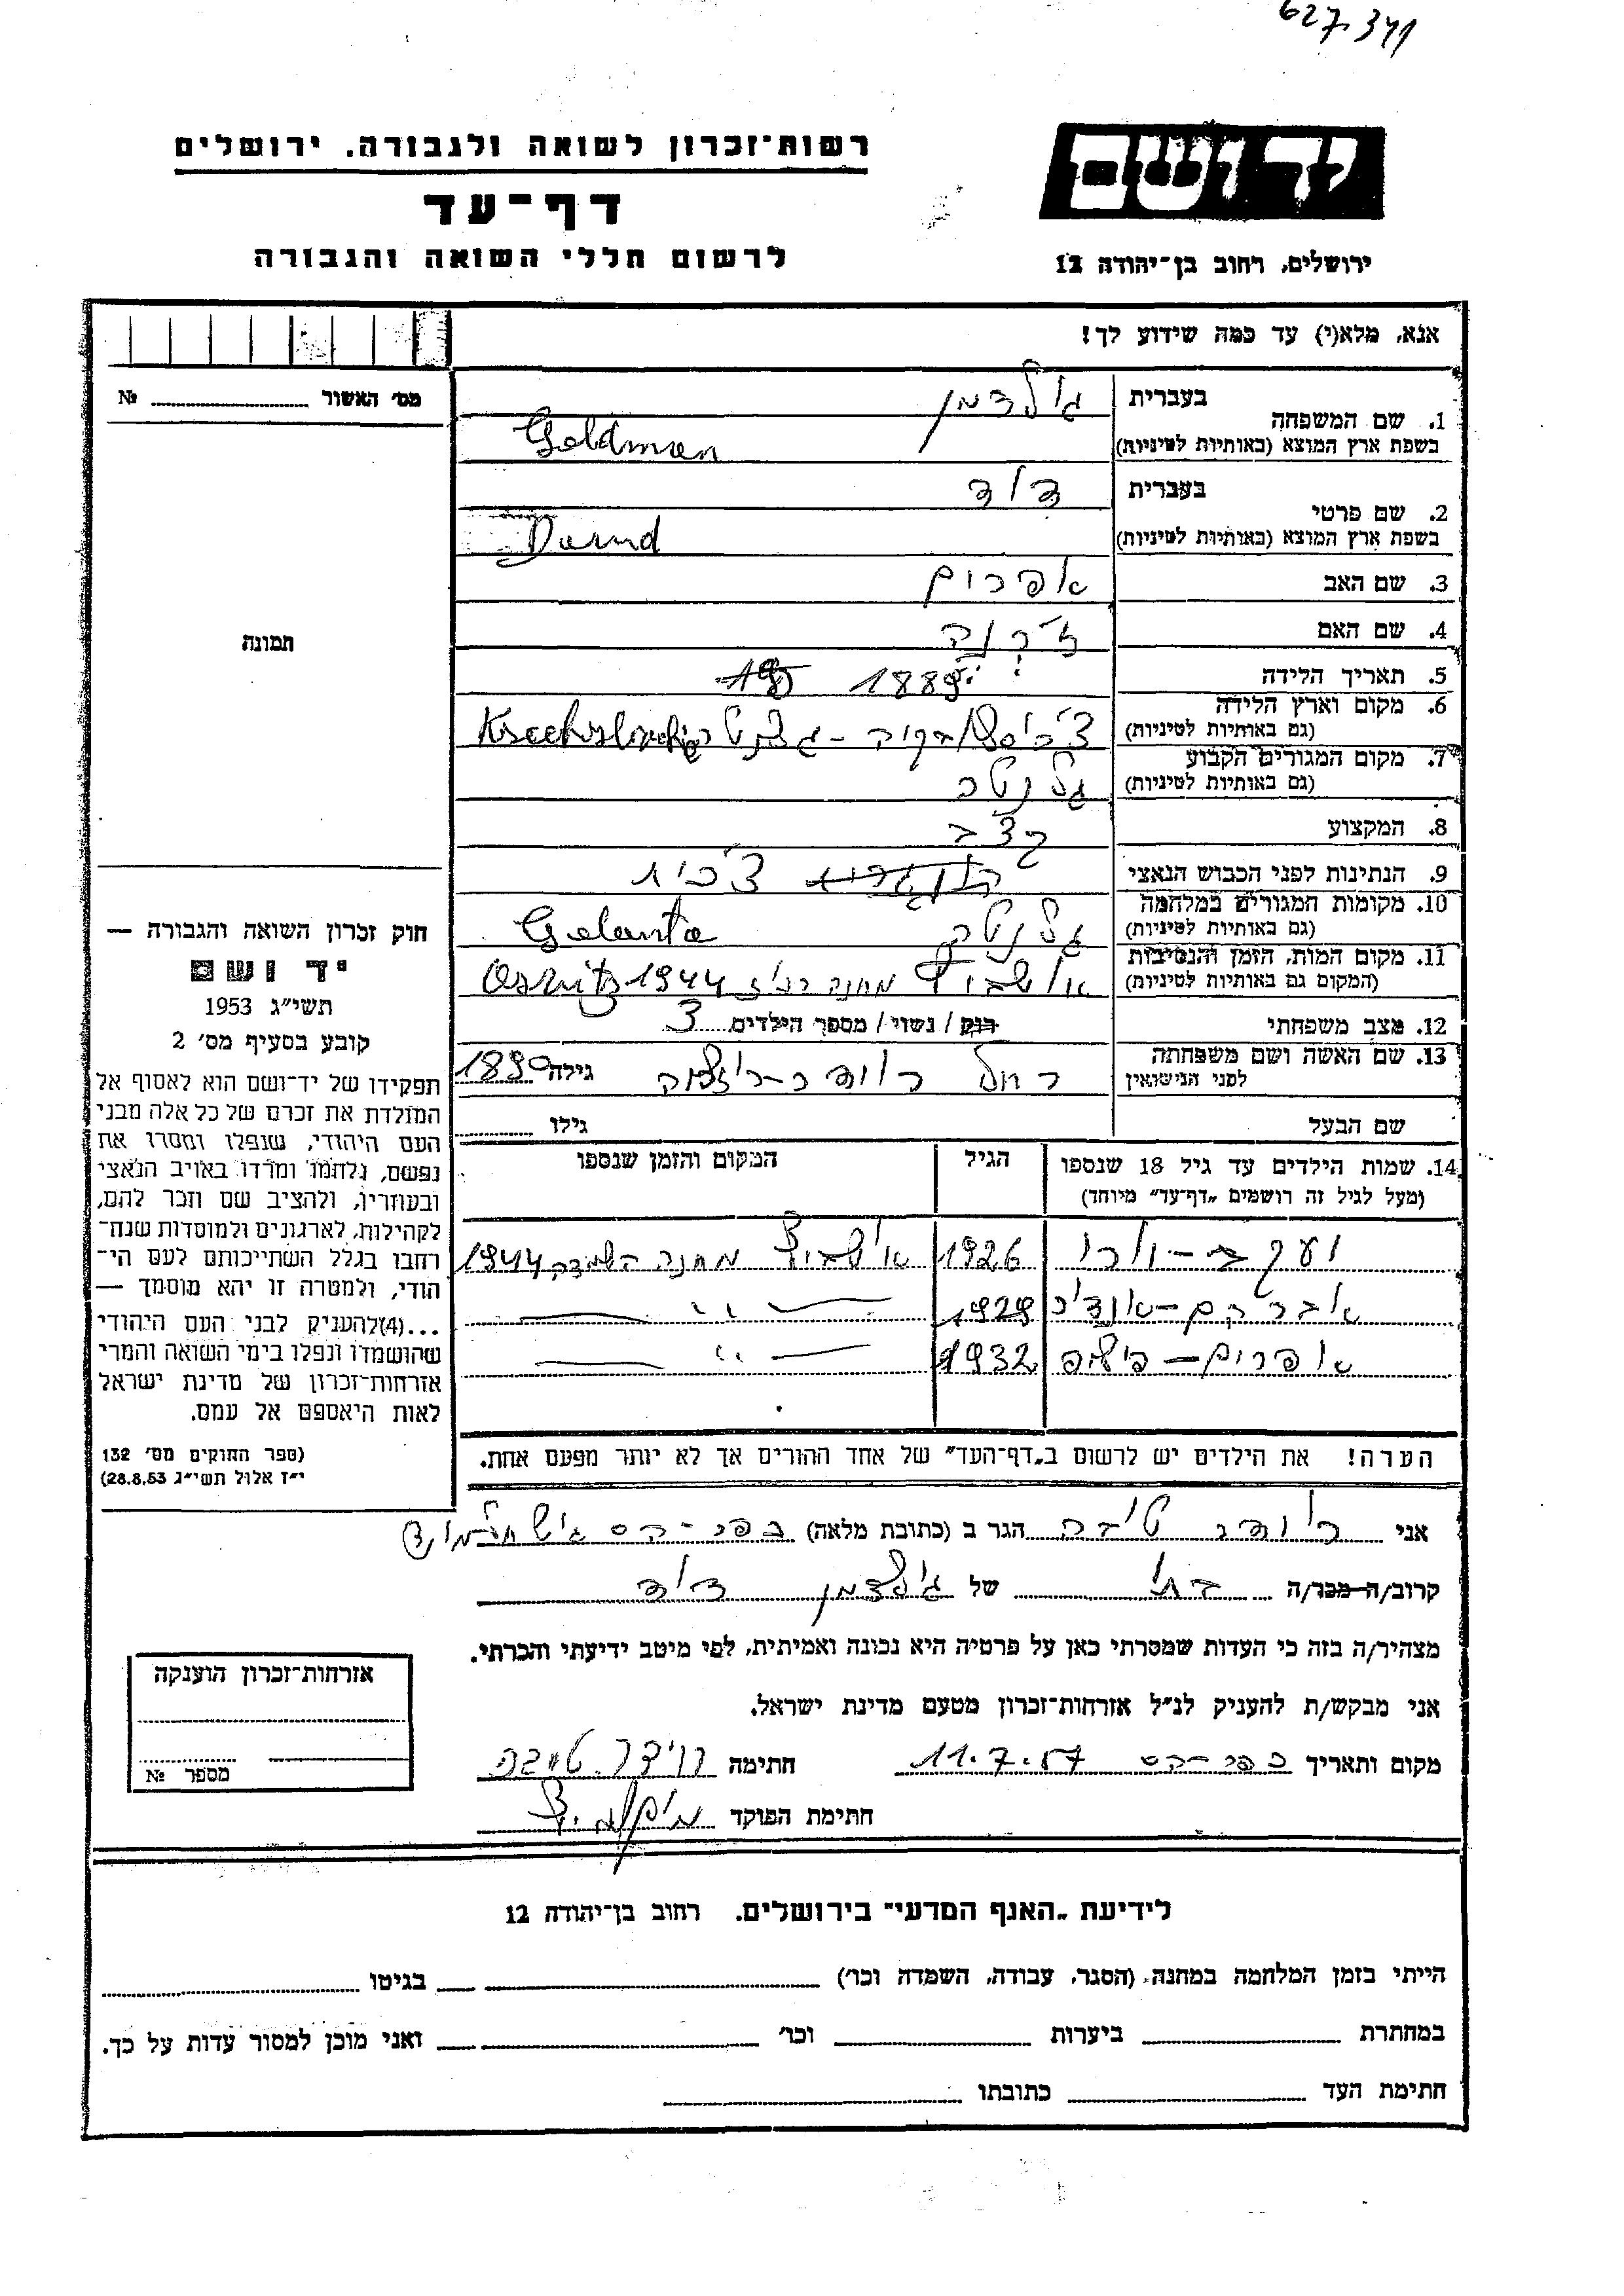 627.341
רשות־זכרון לשואה ולגבורה. ירושלים
דף־עד
לרשום חללי השואה והגבורה
יד ושם
ירושלים, רחוב בן־יהודה 12
אנא, מלא(י) עד כמה שידוע לך!
מס׳ האשור № 
תמונה
1. שם המשפחה
בעברית גולדמן
בשפת ארץ המוצא (באותיות לטיניות) Goldman
2. שם פרטי
בעברית דוד
בשפת ארץ המוצא (באותיות לטיניות)
3. שם האב אפרים
4. שם האם
5. תאריך הלידה 1889
6. מקום וארץ הלידה
(גם באותיות לטיניות)
7. מקום המגורים הקבוע
(גם באותיות לטיניות) גלנטה
8. המקצוע קצב
9. הנתינות לפני הכבוש הנאצי צ׳כית
10. מקומות המגורים במלחמה
(גם באותיות לטיניות) גלנטה Galanta
11. מקום המות, הזמן והנסיבות
(המקום גם באותיות לטיניות) אושביץ מחנה 1944
12. מצב משפחתי רוק / נשוי / מספר הילדים 3
13. שם האשה ושם משפחתה
לפני הנישואין רחל גילה 1890
שם הבעל גילו
14. שמות הילדים עד גיל 18 שנספו הגיל המקום והזמן שנספו
(מעל לגיל זה רושמים „דף־עד״ מיוחד)
יעקב 1926 אושביץ מחנה השמדה 1944
אברהם 1929 — ״ —
אפרים 1932 — ״ —
הערה! את הילדים יש לרשום ב„דף־העד״ של אחד ההורים אך לא יותר מפעם אחת.
חוק זכרון השואה והגבורה —
יד ושם
תשי״ג 1953
קובע בסעיף מס׳ 2
תפקידו של יד־ושם הוא לאסוף אל
המולדת את זכרם של כל אלה מבני
העם היהודי, שנפלו ומסרו את
נפשם, נלחמו ומרדו באויב הנאצי
ובעוזריו, ולהציב שם וזכר להם,
לקהילות, לארגונים ולמוסדות שנח־
רחבו בגלל השתייכותם לעם הי־
הודי, ולמטרה זו יהא מוסמך —
...(4)להעניק לבני העם היהודי
שהושמדו ונפלו בימי השואה והמרי
אזרחות־זכרון של מדינת ישראל
לאות היאספם אל עמם.
(ספר החוקים מס׳ 132
י״ז אלול תשי״ג 28.8.53)
אני הגר ב (כתובת מלאה)
קרוב/ה מכר/ה של גולדמן דוד
מצהיר/ה בזה כי העדות שמסרתי כאן על פרטיה היא נכונה ואמיתית, לפי מיטב ידיעתי והכרתי.
אני מבקש/ת להעניק לנ״ל אזרחות־זכרון מטעם מדינת ישראל.
מקום ותאריך 11.7.57 חתימה
חתימת הפוקד
אזרחות־זכרון הוענקה
מספר №
לידיעת „האגף המדעי״ בירושלים. רחוב בן־יהודה 12
הייתי בזמן המלחמה במחנה (הסגר, עבודה, השמדה וכו׳) בגיטו
במחתרת ביערות וכו׳ ואני מוכן למסור עדות על כך.
חתימת העד כתובתו